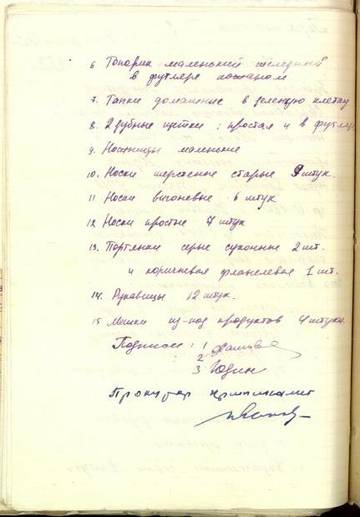 6 Топорик маленький железный
в футляре кожаном
7. Тапки домашние в зеленую клетку
8. 2 зубные щетки: простая и в футляре
9. Ножницы маленькие
10. Носки шерстяные старые 9 штук
11 Носки вигоневые 6 штук
12 Носки простые 7 штук
13. Портянки серые суконные 2 шт.
и коричневая фланелевые 1 шт.
14. Рукавицы 12 штук.
15. Мешки из-под продуктов 4 штуки.
Подписи: 1
2
3 Юдин
Прокурор криминалист